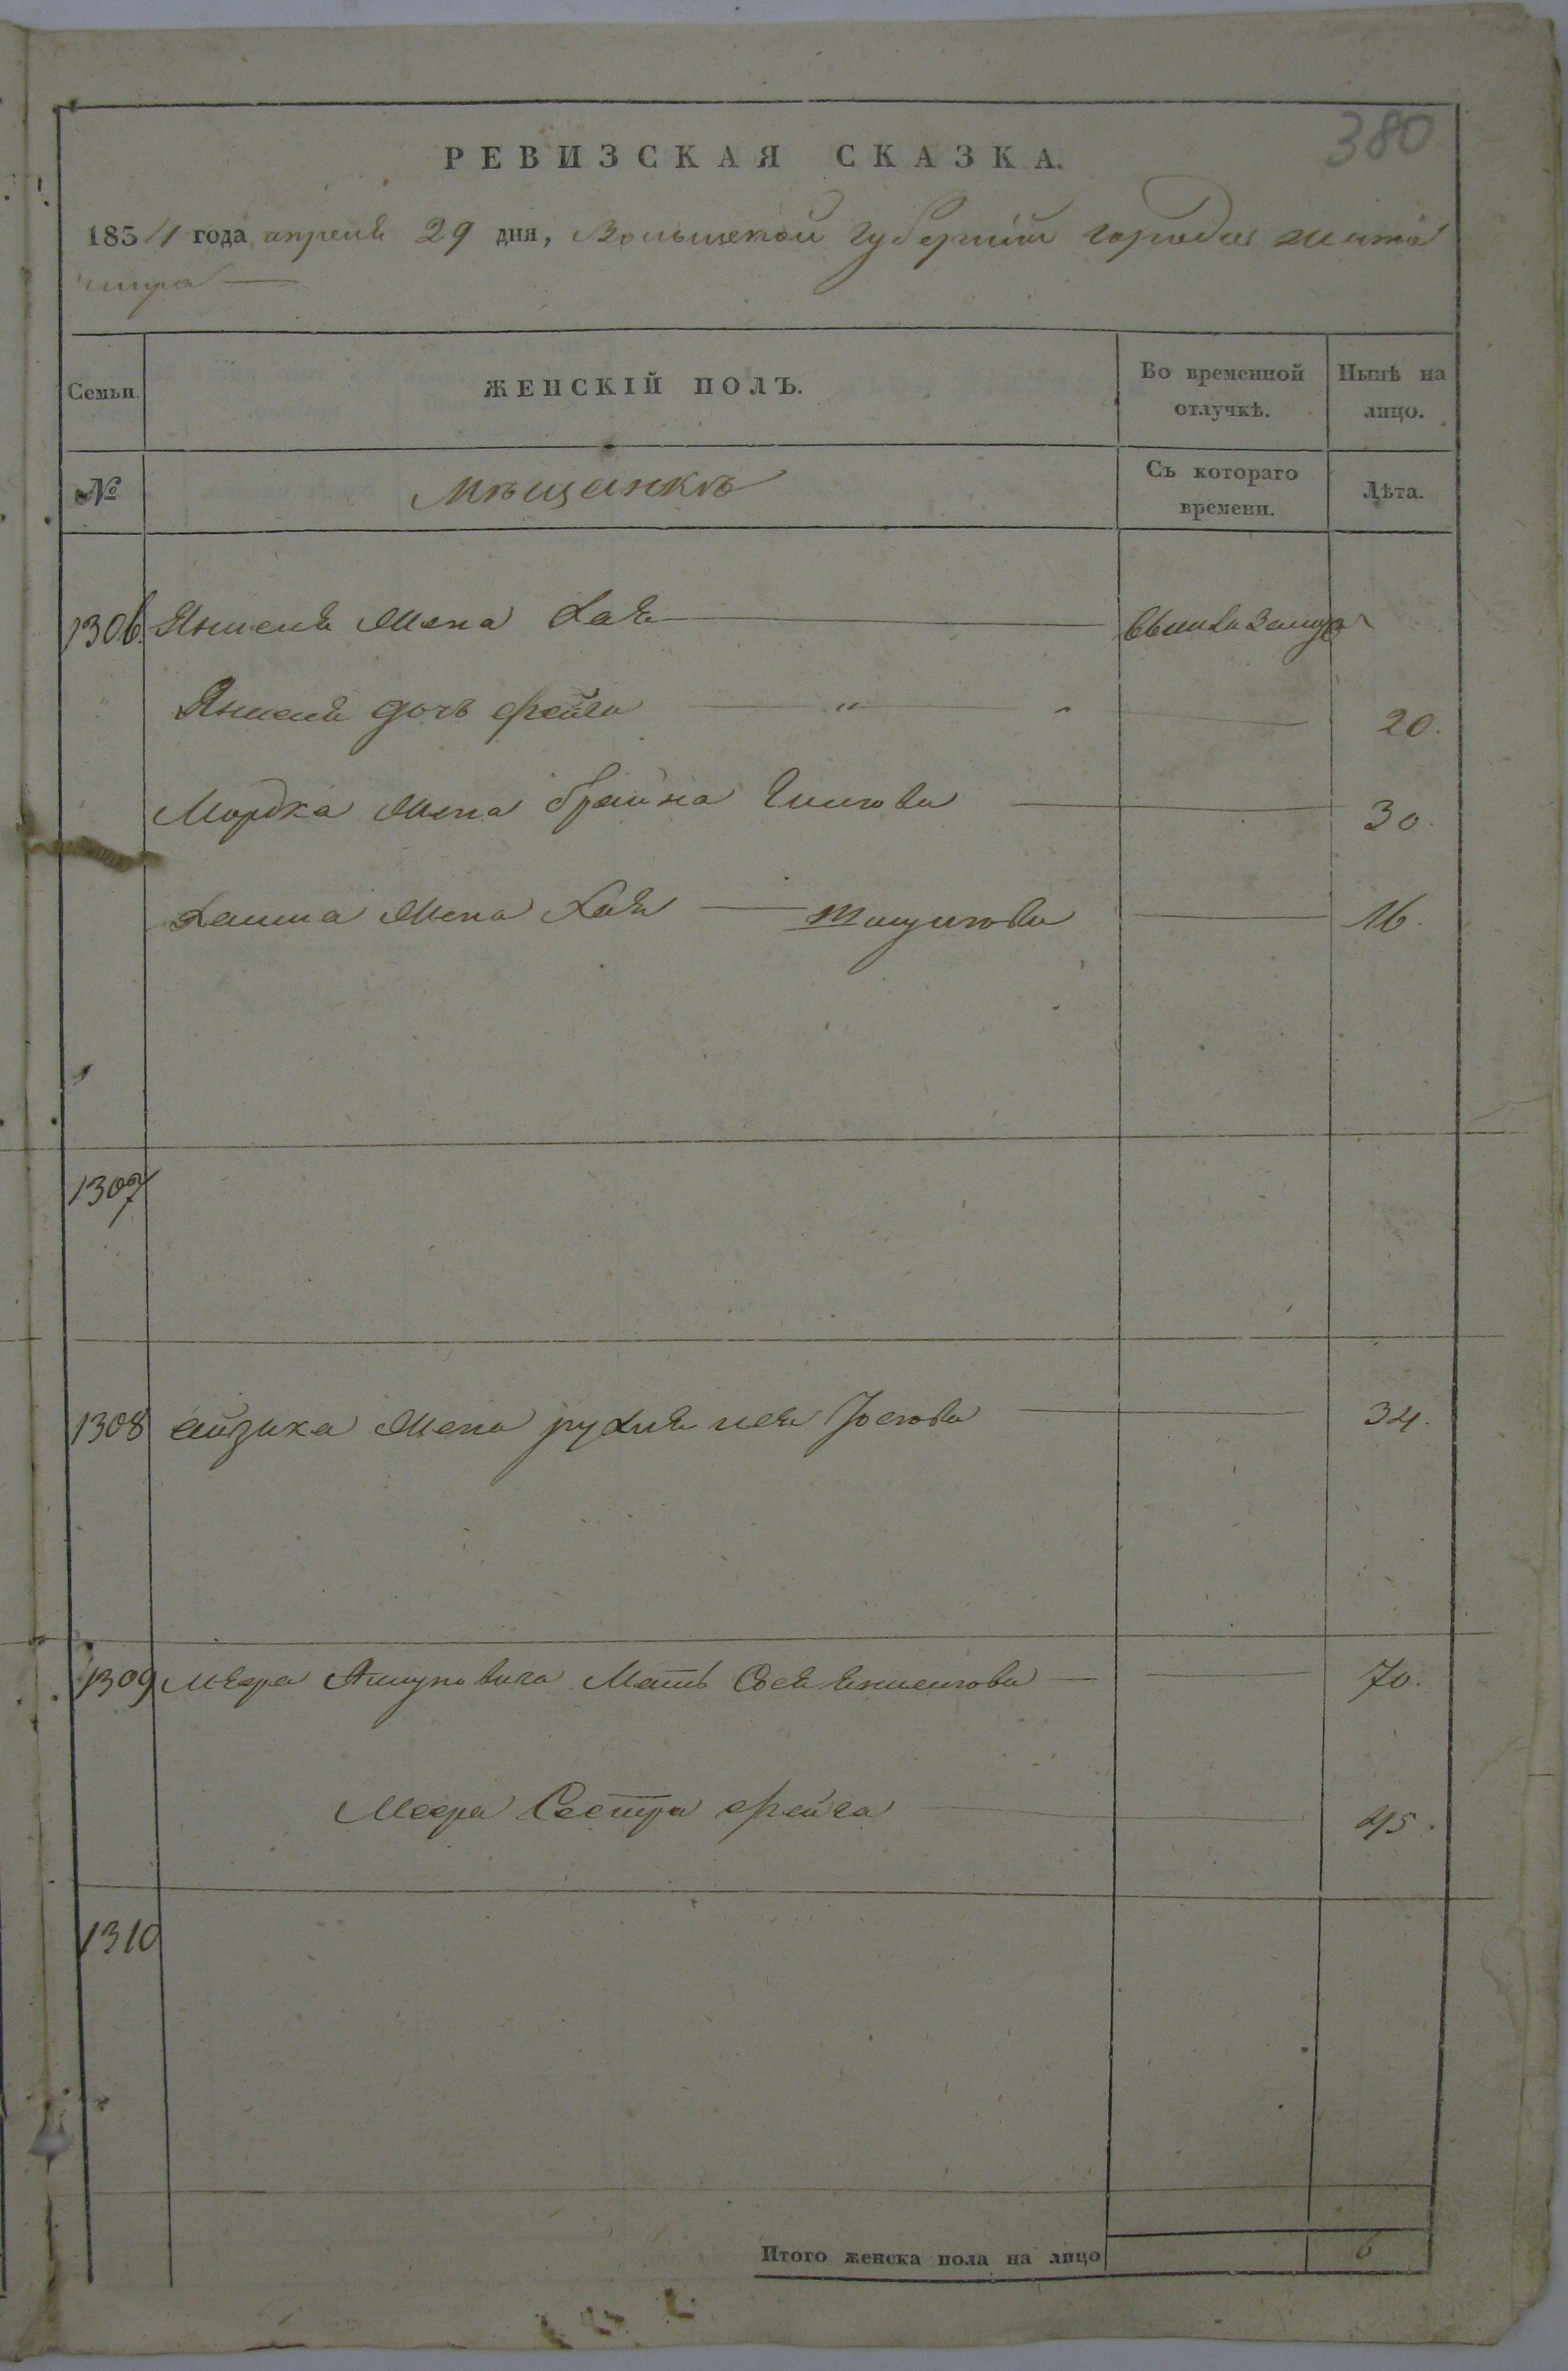 380
РЕВИЗСКАЯ СКАЗКА.
1854 года апреля 29 дня, Волынской губернии города Жито
мира
Семьи.
ЖЕНСКІЙ ПОЛЪ.
Во временной отлучкѣ.
Нынѣ на лицо.
№
Мѣщанкѣ
Съ котораго времени.
Лѣта.
1306. Янкеля жена Хая вышла замуж
Янкеля дочь Фейга " " 20.
Мордка жена Брайна 30.
жена Хая 16.
1307
1308 Айзика жена Рухля Лея Йоскова 34.
1309 Меера Мать Сося 70.
Меера Сестра Фейга 45.
1310
Итого женска пола на лицо 6